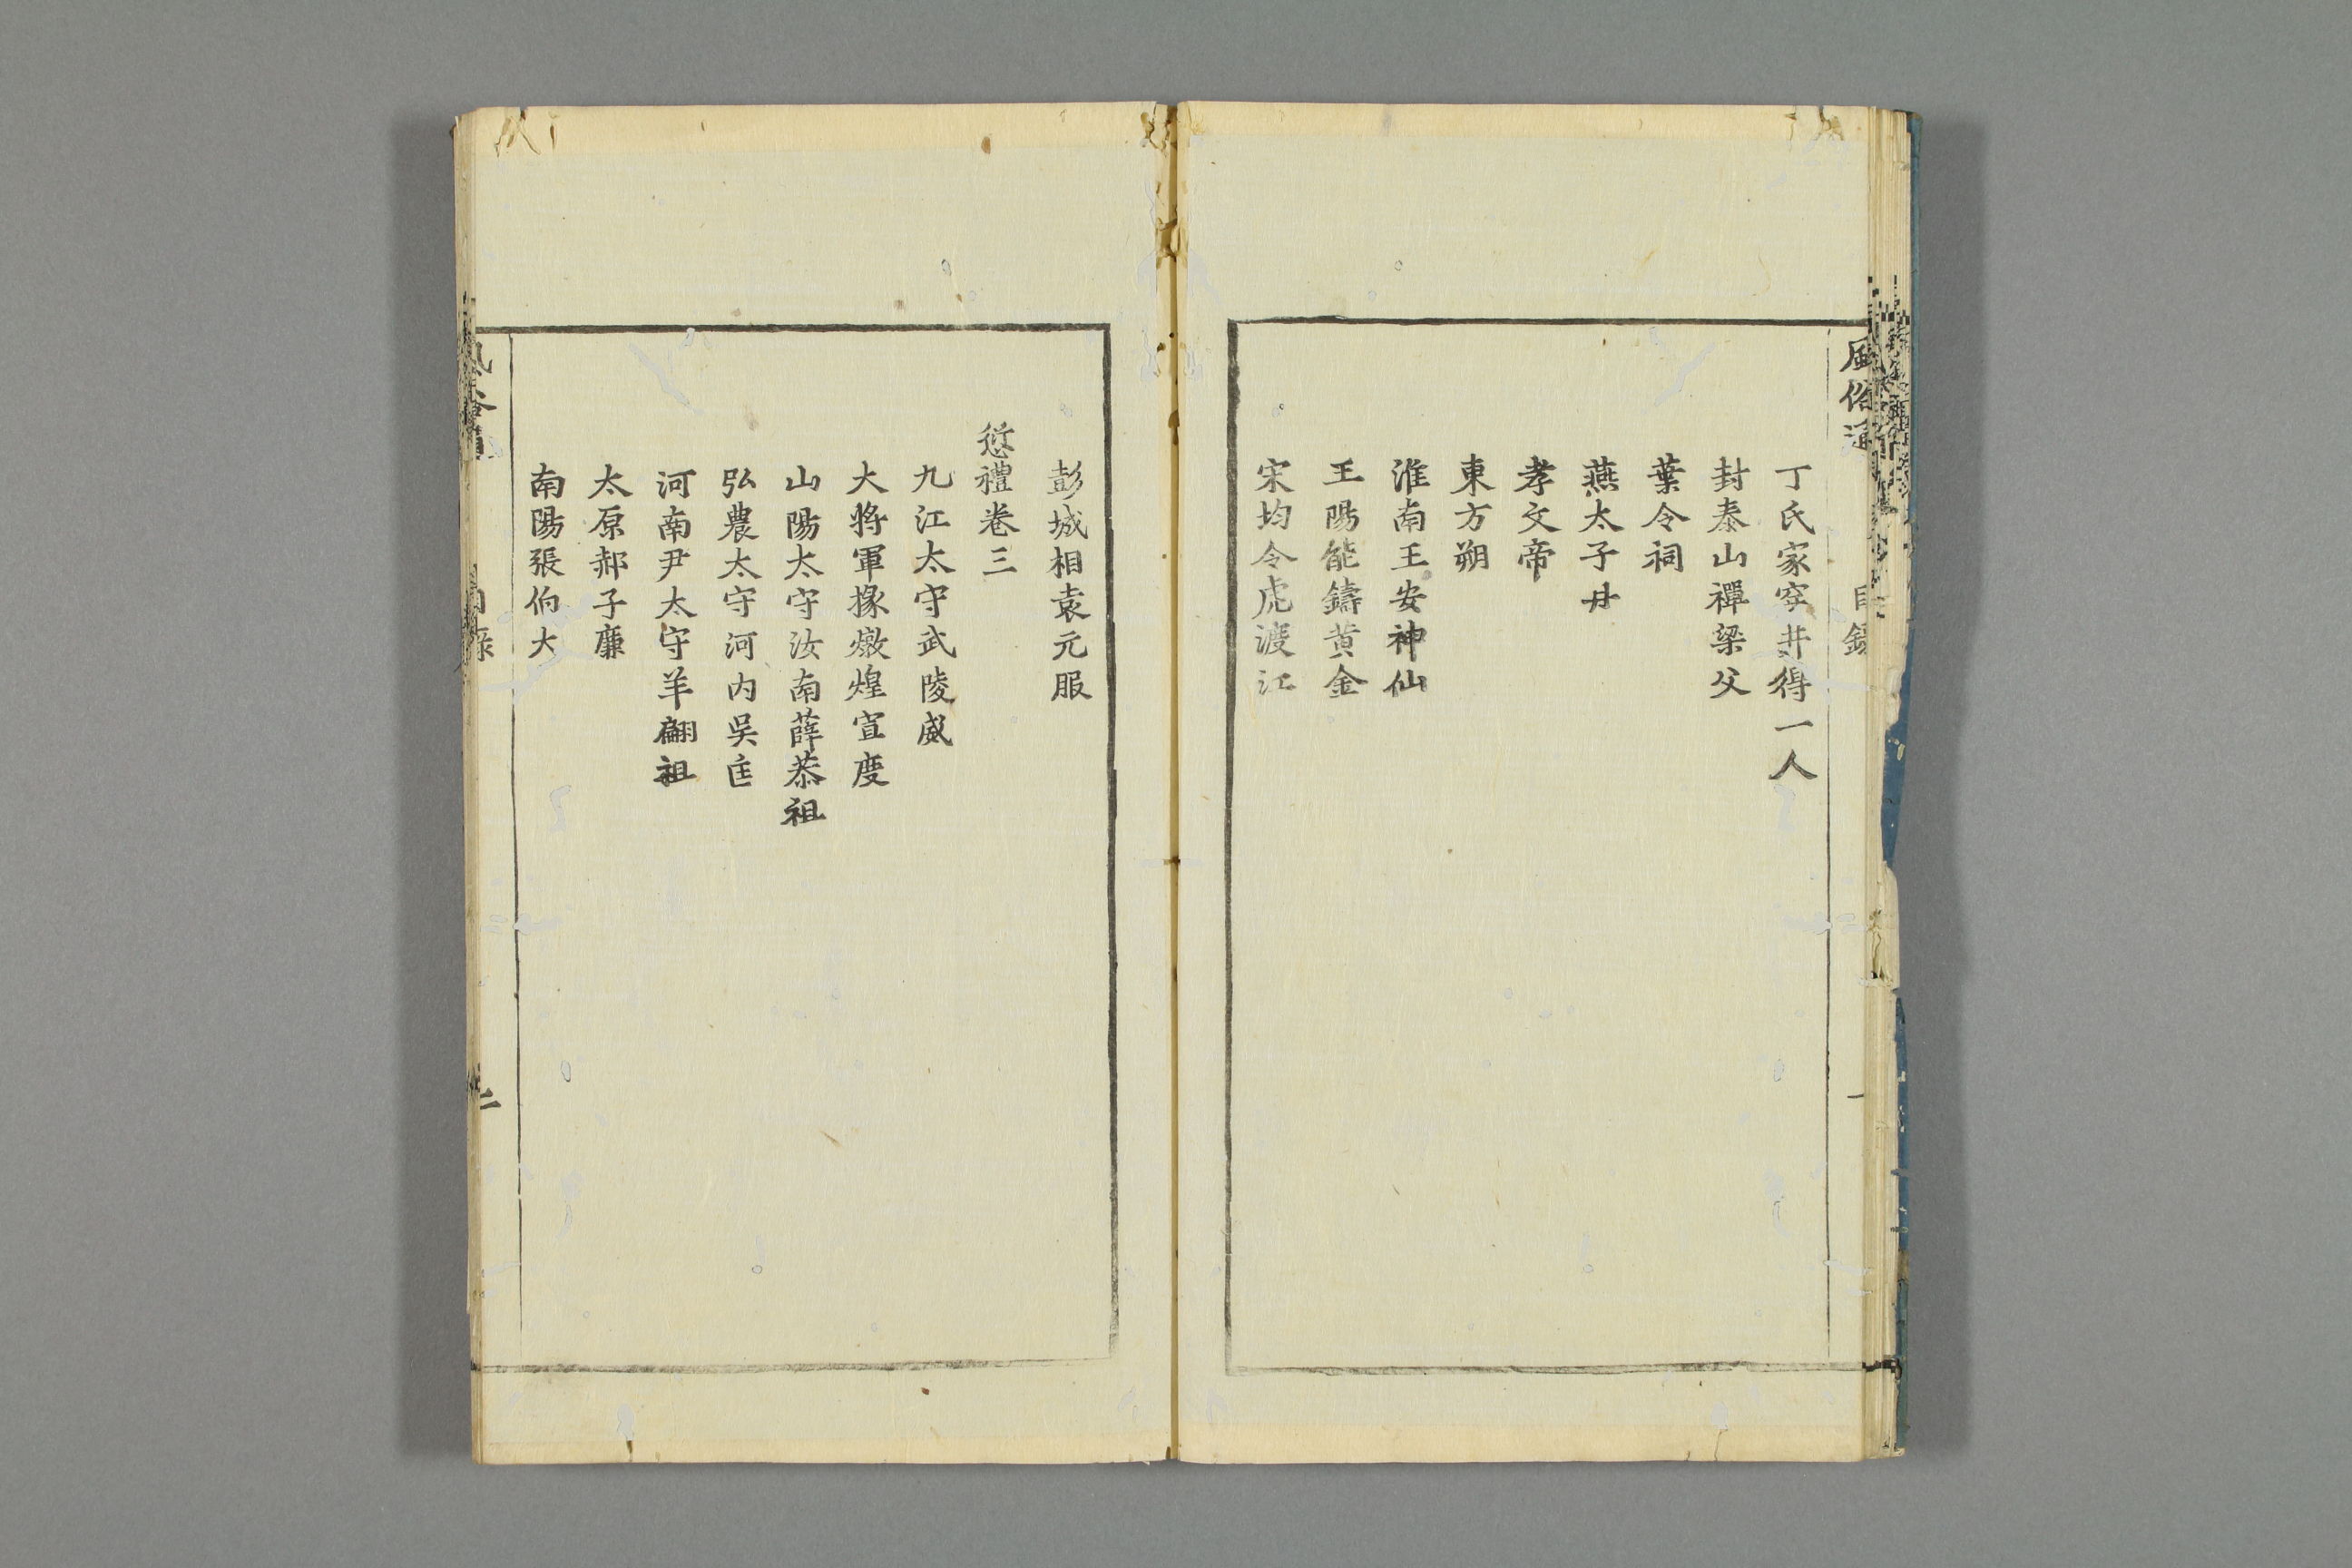 風俗通
目錄
一
丁氏家穿井得一人
封泰山禪梁父
葉令祠
燕太子丹
孝文帝
東方朔
淮南王安神仙
王陽能鑄黄金
宋均令虎渡江
彭城相袁元服
愆禮卷三
九江太守武陵威
大將軍掾燉煌宣度
山陽太守汝南薛恭祖
弘農太守河内吳匡
河南尹太守羊翩祖
太原郝子廉
南陽張伯大
二